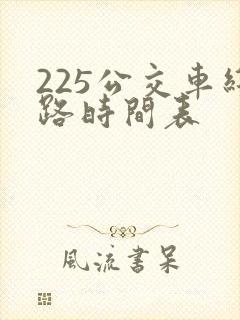 225公交車線
路時間表
風流書呆